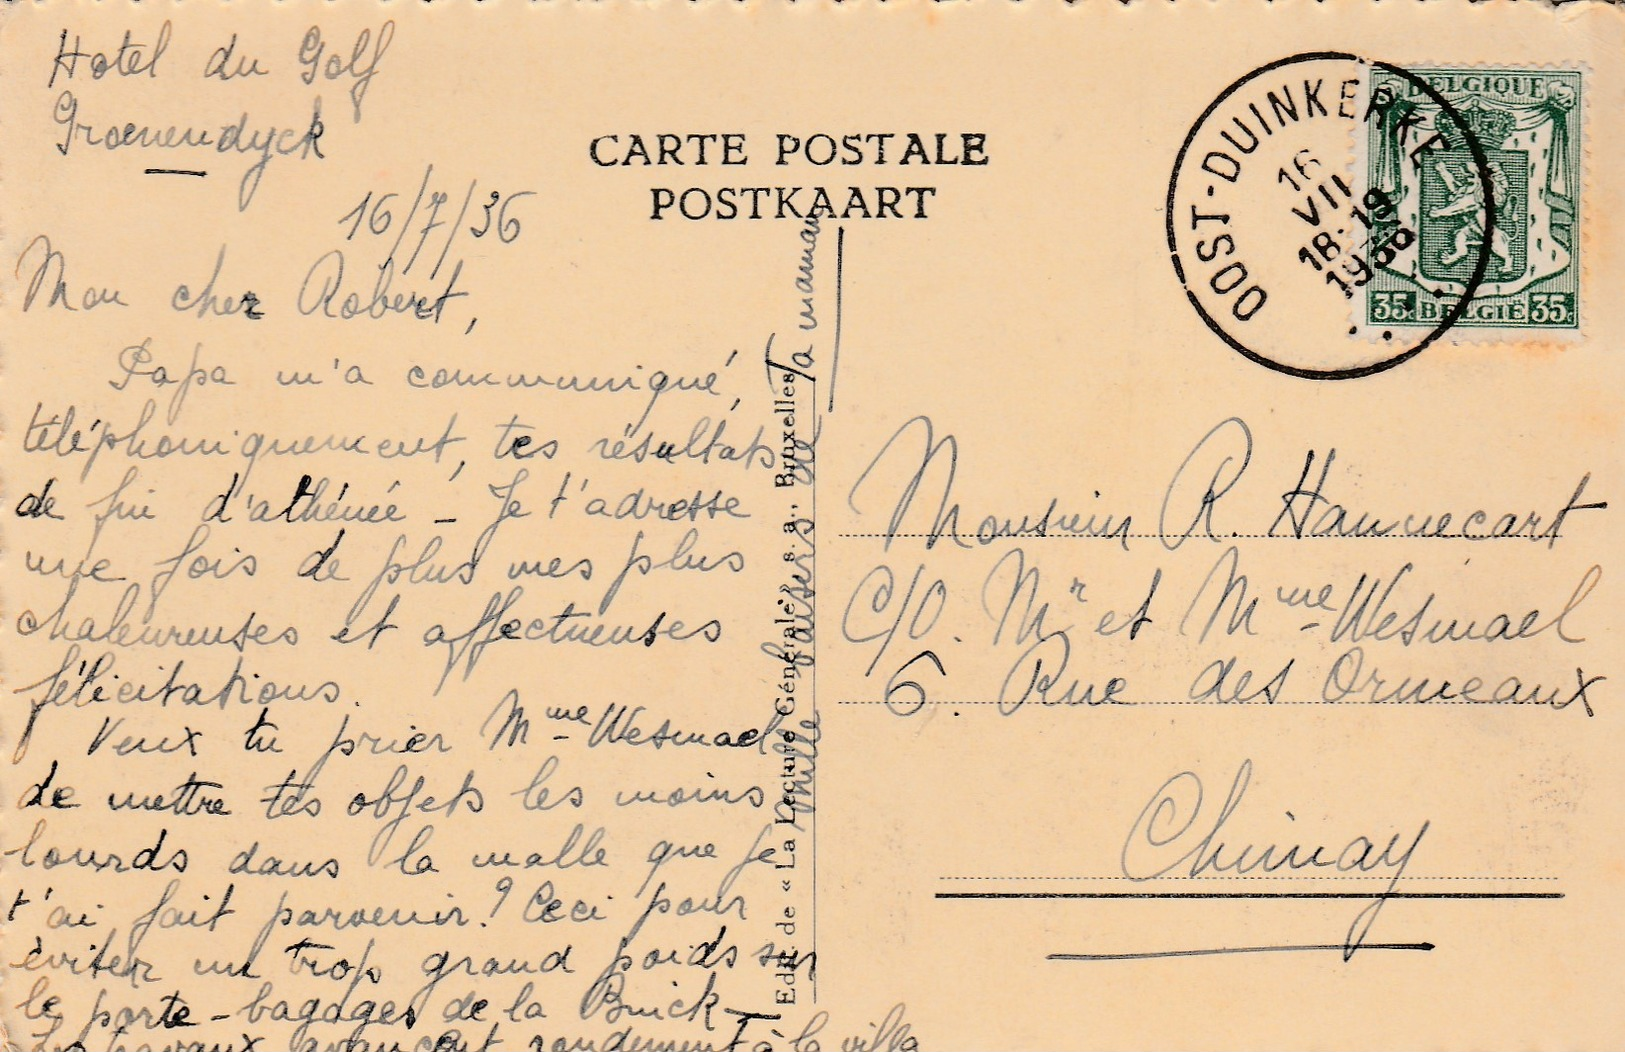 Hotel du Golf
Groenendyck
16/7/36
Mon cher Robert,
Papa m'a communiqué,
téléphoniquement, tes résultats
de fin d'athénée - Je t'adresse
une fois de plus mes plus
chaleureuses et affectueuses
félicitations.
Veux tu prier Mme Wesmael
de mettre tes objets les moins
lourds dans la malle que je
t'ai fait parvenir? Ceci pour
éviter un trop grand poids sur
le porte-bagages de la Buick -
Les travaux avancent rondement à la villa
Mille baisers de Ta maman
Edit. de « La Lecture Générale » s. a., Bruxelles
CARTE POSTALE
POSTKAART
OOST-DUINKERKE
16
VII
18-19
1936
BELGIQUE
35c BELGIË 35c
Monsieur R. Hannecart
C/O. Mr et Mme Wesmael
6. Rue des Ormeaux
Chimay